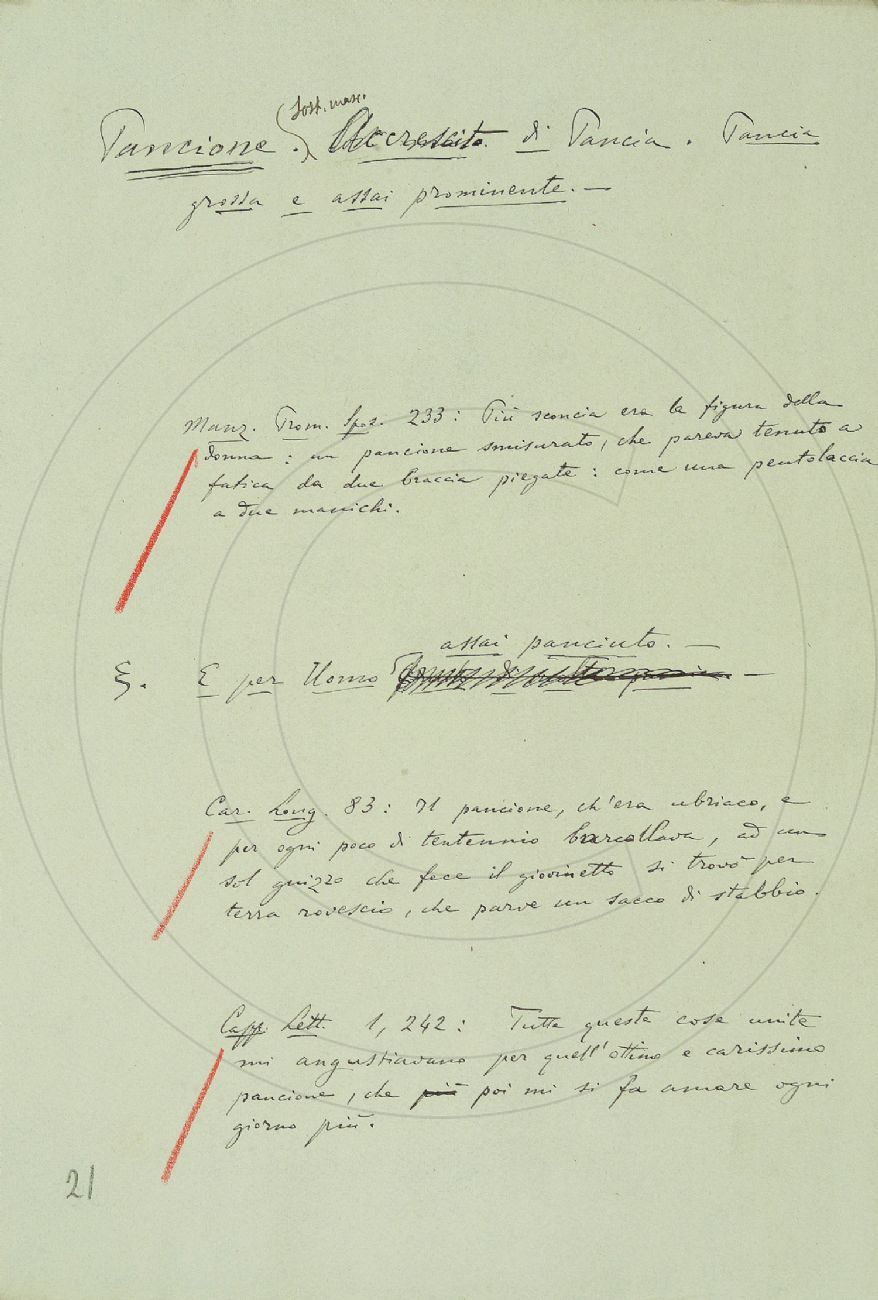 Sost. masc.
Pancione. Accrescit. di Pancia. Pancia
grossa e assai prominente. —
Manz. Prom. Spos. 233: Più sconcia era la figura della
donna: un pancione smisurato, che pareva tenuto a
fatica da due braccia piegate: come una pentolaccia
a due manichi.
assai panciuto. —
§. E per Uomo —
Car. Long. 83: Il pancione, ch'era ubriaco, e
per ogni poco di tentennio barcollava, ad un
sol guizzo che fece il giovinetto si trovò per
terra rovescio, che parve un sacco di stabbio.
Capp. Lett. 1, 242: Tutte queste cose unite
mi angustiavano per quell'otimo e carissimo
pancione, che più poi mi si fa amare ogni
giorno più.
21